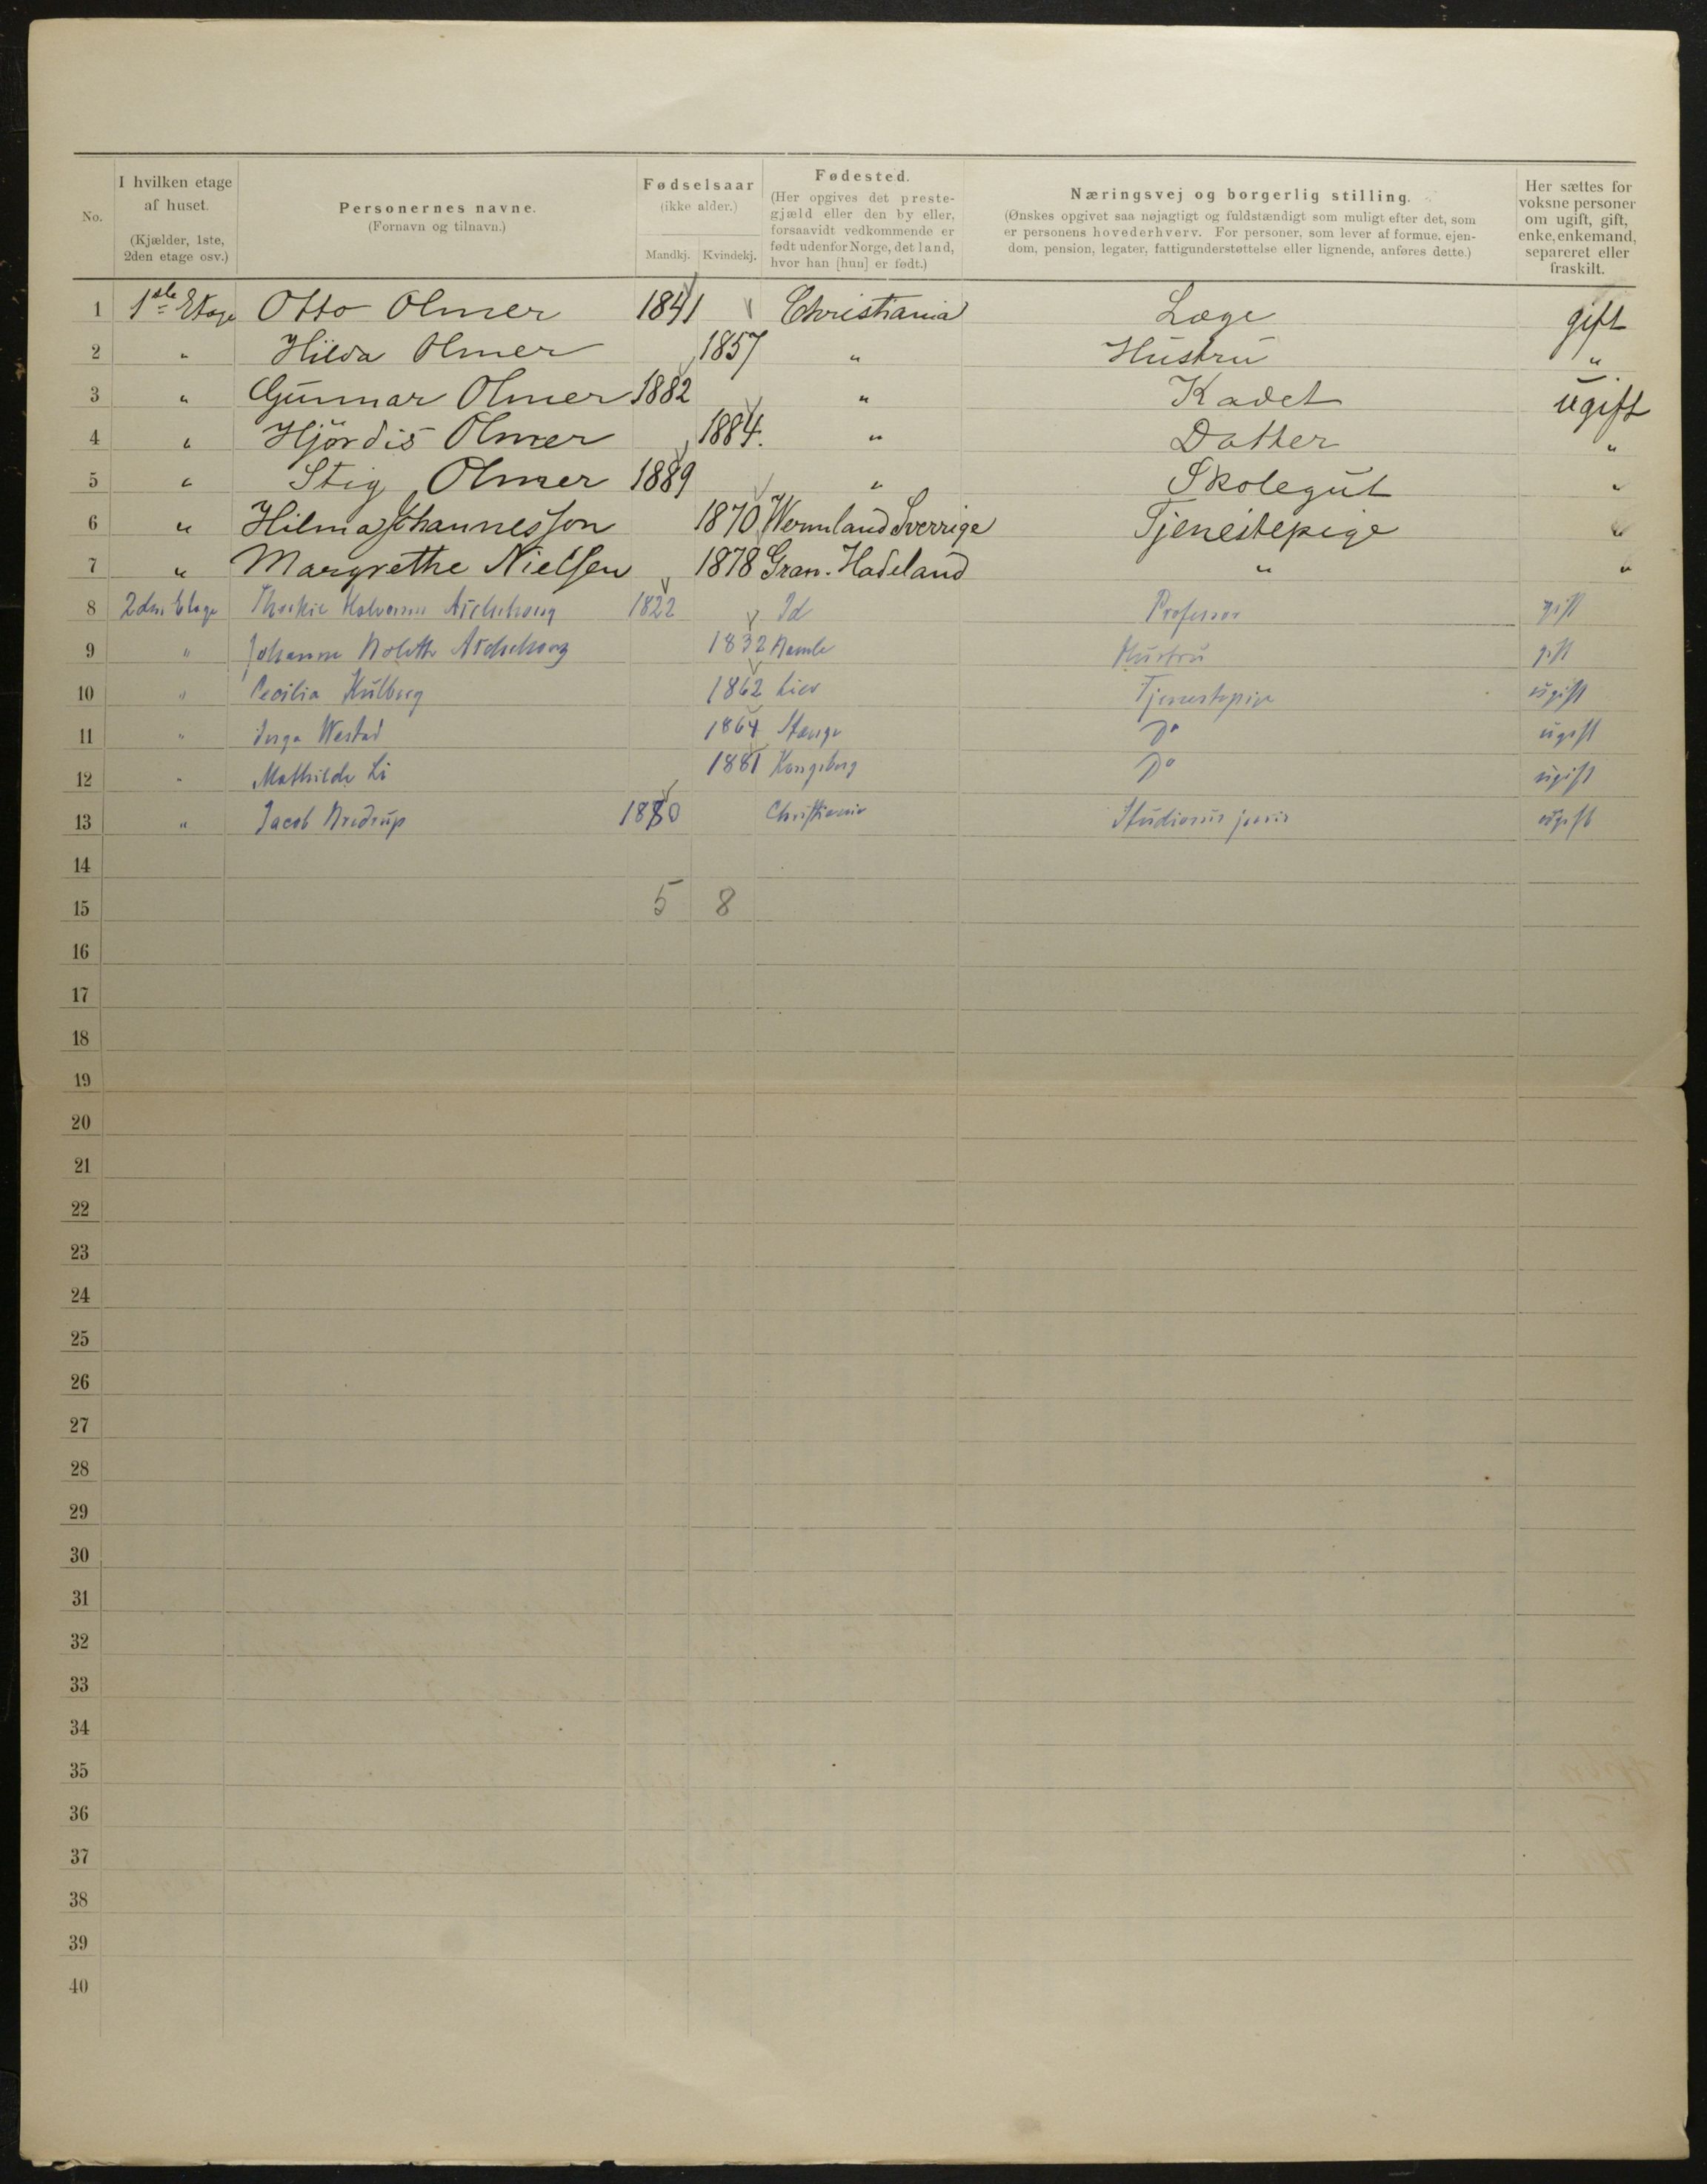 No.
I hvilken etage
af huset.
(Kjælder, 1ste,
2den etage osv.)
Personernes navne.
(Fornavn og tilnavn.)
Fødselsaar
(ikke alder.)
Mandkj. Kvindekj.
Fødested.
(Her opgives det preste-
gjæld eller den by eller,
forsaavidt vedkommende er
født udenfor Norge, det land,
hvor han [hun] er født.)
Næringsvej og borgerlig stilling.
(Ønskes opgivet saa nøjagtigt og fuldstændigt som muligt efter det, som
er personens hovederhverv. For personer, som lever af formue, ejen-
dom, pension, legater, fattigunderstøttelse eller lignende, anføres dette.)
Her sættes for
voksne personer
om ugift, gift,
enke, enkemand,
separeret eller
fraskilt.
1 1ste Etage Otto Olmer 1841 Christiania Læge gift
2 " Hilda Olmer 1857 " Hustru "
3 " Gunnar Olmer 1882 " Kadet ugift
4 " Hjördis Olmer 1884. " Datter "
5 " Stig Olmer 1889 " Skolegut "
6 " Hilma Johannesson 1870 Wermland Sverrige Tjenestepige "
7 " Margrethe Nielsen 1878 Gran. Hadeland " "
8 2den Etage Aschehoug 1822 Id Professor gift
9 " Johanne Aschehoug 1832 Hustru gift
10 " Cecilia Kulberg 1862 Lier Tjenestepige ugift
11 " Inga Westad 1864 Stange Do ugift
12 " Mathilde Li 1881 Kongsberg Do ugift
13 " Jacob 1880 Christiania Studiosus juris ugift
14
15 5 8
16
17
18
19
20
21
22
23
24
25
26
27
28
29
30
31
32
33
34
35
36
37
38
39
40